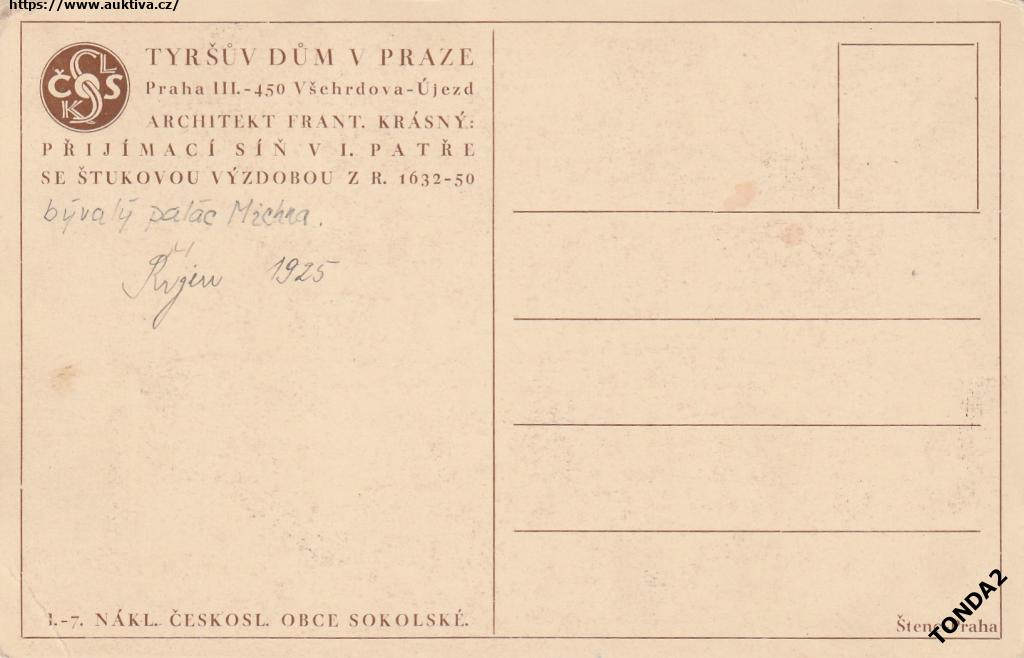 https://www.auktiva.cz/
TYRŠŮV DŮM V PRAZE
Praha III.-450 Všehrdova-Újezd
ARCHITEKT FRANT. KRÁSNÝ:
PŘIJÍMACÍ SÍŇ V I. PATŘE
SE ŠTUKOVOU VÝZDOBOU Z R. 1632-50
ČLSKOS
bývalý palác Michna.
Říjen 1925
I.-7. NÁKL. ČESKOSL. OBCE SOKOLSKÉ.
Štenc Praha
TONDA2